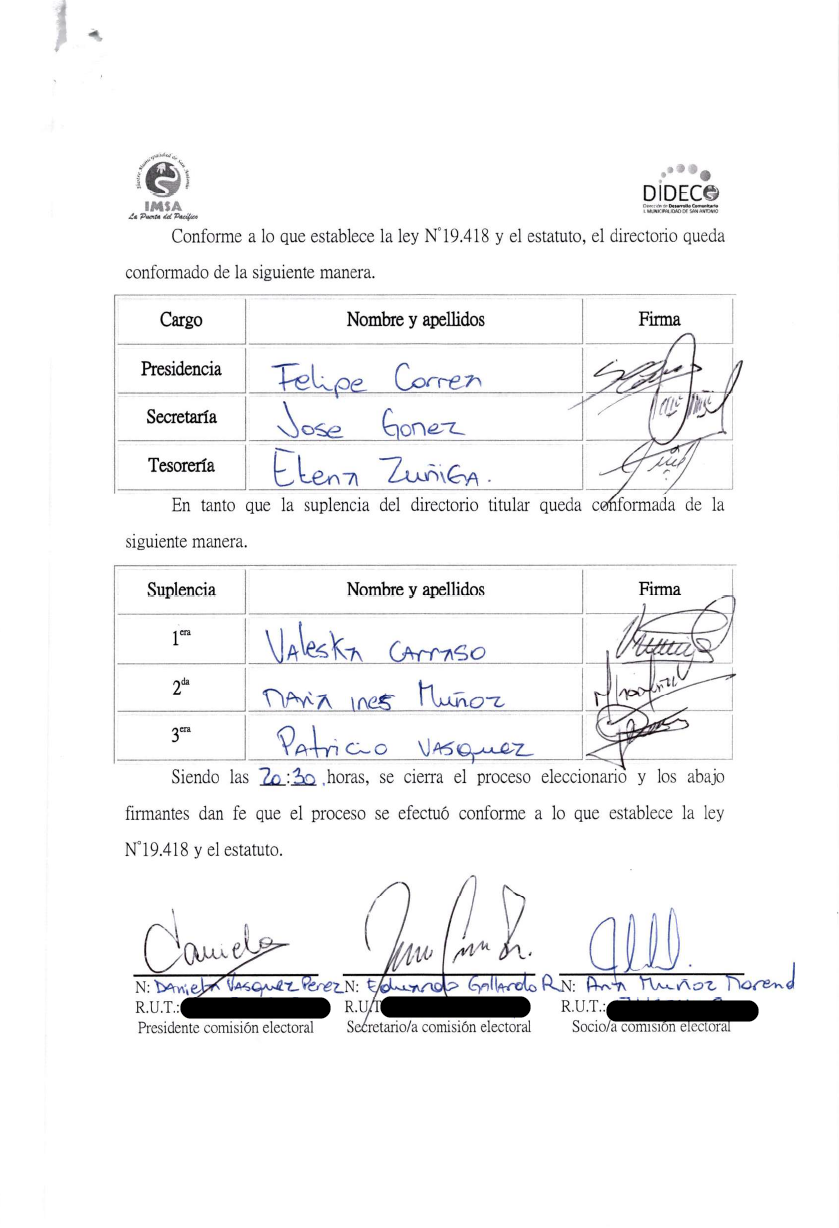 Ilustre Municipalidad de San Antonio
IMSA
La Puerta del Pacífico
DIDECO
Dirección de Desarrollo Comunitario
I. MUNICIPALIDAD DE SAN ANTONIO
Conforme a lo que establece la ley N°19.418 y el estatuto, el directorio queda
conformado de la siguiente manera.
Cargo Nombre y apellidos Firma
Presidencia Felipe Correa
Secretaría Jose Gomez
Tesorería Elena Zuñiga.
En tanto que la suplencia del directorio titular queda conformada de la
siguiente manera.
Suplencia Nombre y apellidos Firma
1era Valeska Carraso
2da Maria ines Muñoz
3era Patricio Vasquez
Siendo las 20:30 horas, se cierra el proceso eleccionario y los abajo
firmantes dan fe que el proceso se efectuó conforme a lo que establece la ley
N°19.418 y el estatuto.
Daniela
N: Daniela Vasquez Perez N: Eduardo Gallardo R N: Ana Muñoz Moreno
R.U.T.: R.U.T R.U.T.:
Presidente comisión electoral Secretario/a comisión electoral Socio/a comisión electoral